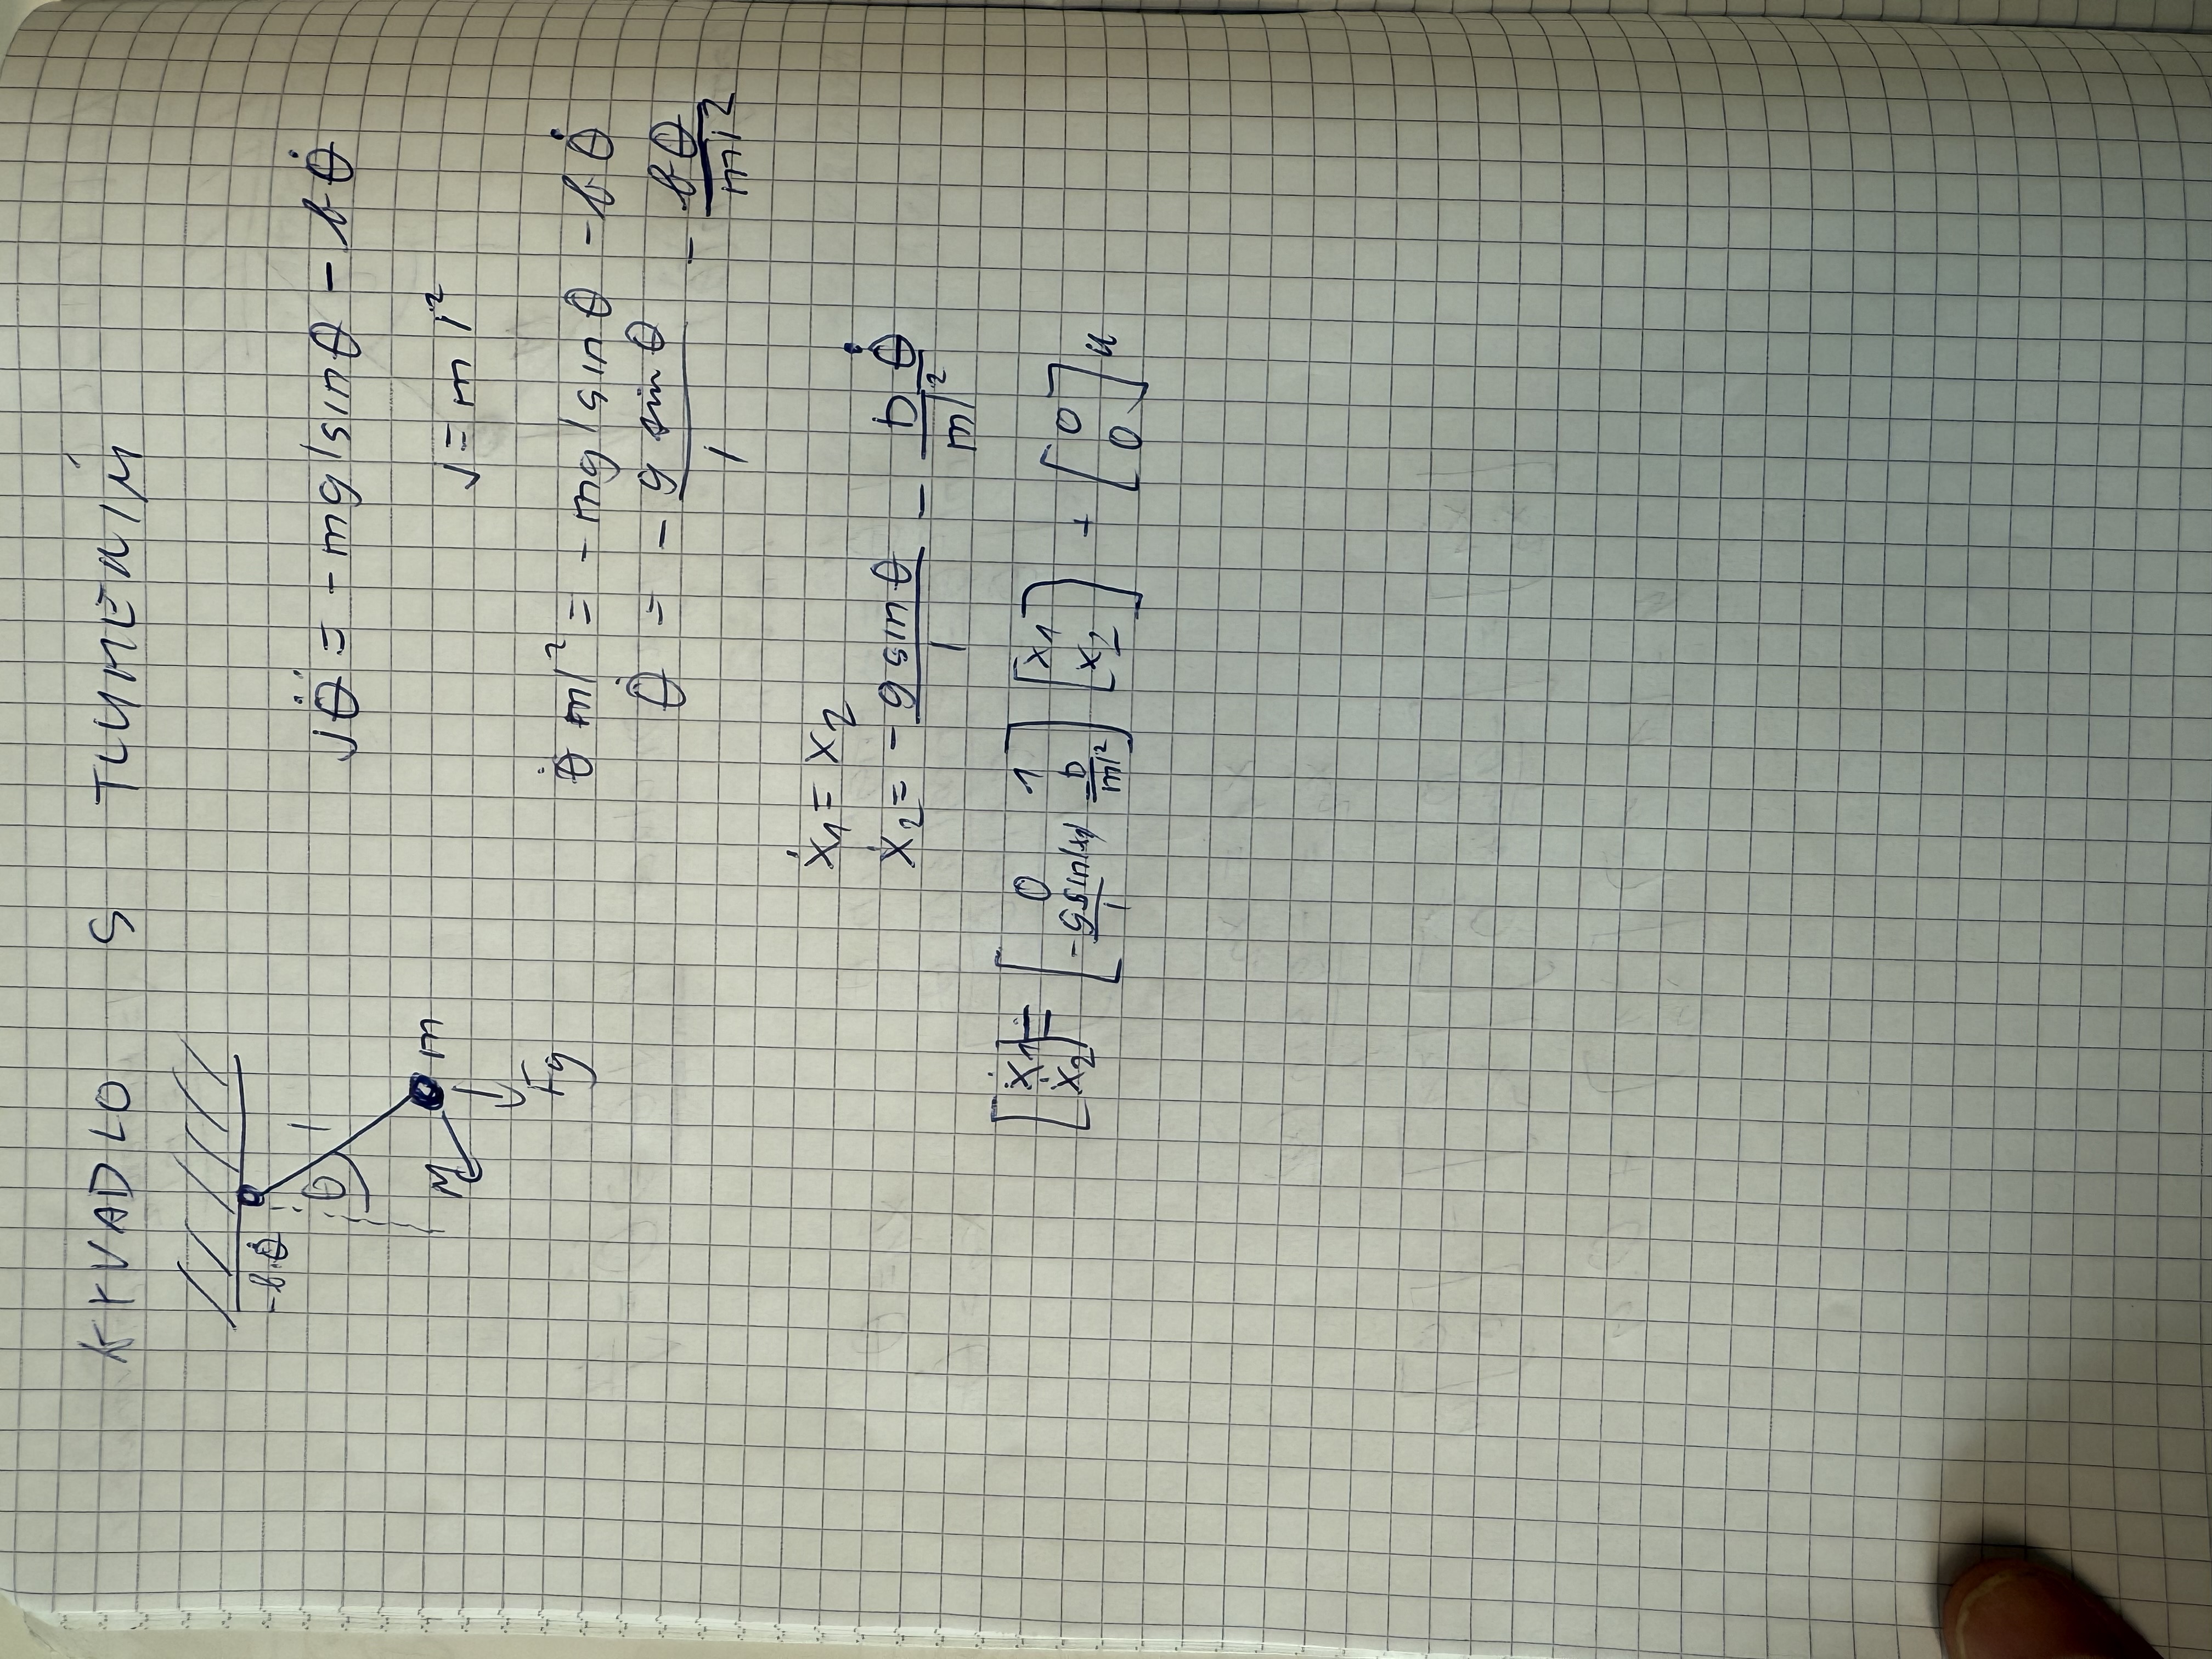 KYVADLO S TLUMENÍM
-b·θ̇
θ l
M m
Fg
Jθ̈ = -mglsinθ - bθ̇
J = ml²
θ̇ ml² = -mglsinθ - bθ̇
θ̇ = - g sinθ / l - bθ / ml²
ẋ₁ = x₂
ẋ₂ = - g sinθ / l - b θ̇ / ml²
[ẋ₁ ẋ₂] = [0 1 -g sin(x₁) / l b / ml²] [x₁ x₂] + [0 0] u